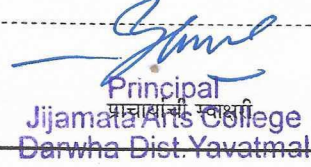 Principal
प्राचार्याची स्वाक्षरी
Jijamata Arts College
Darwha Dist.Yavatmal